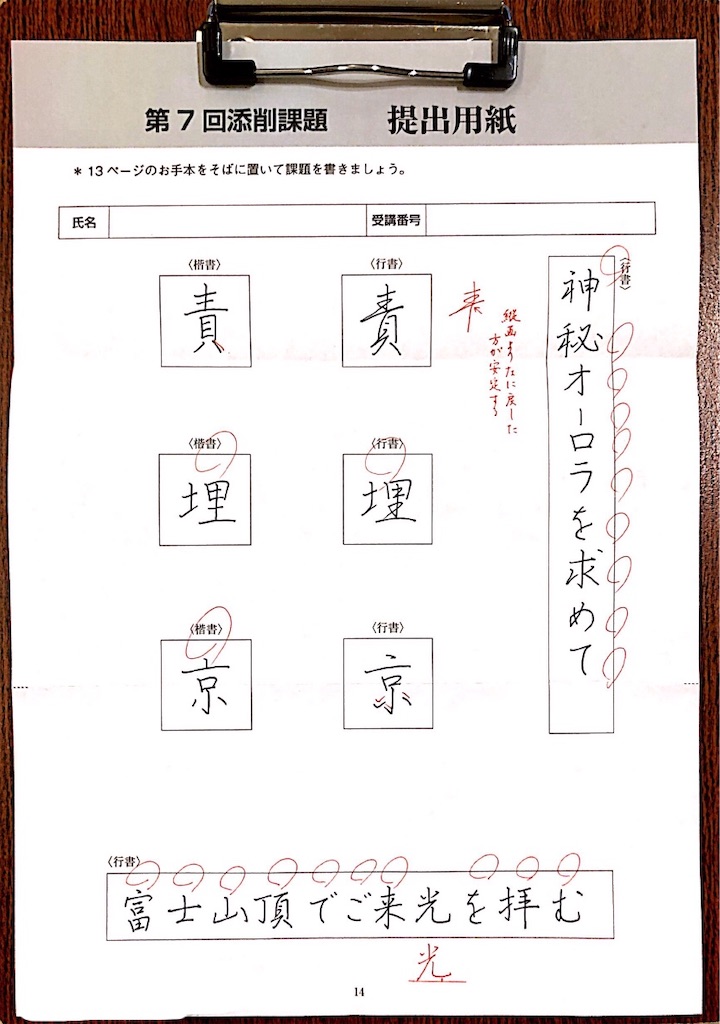 第7回添削課題 提出用紙
＊13ページのお手本をそばに置いて課題を書きましょう。
氏名 受講番号
〈行書〉
神秘オーロラを求めて
〈楷書〉 〈行書〉
責 責
縦画より左に戻した
方が安定する
〈楷書〉 〈行書〉
埋 埋
〈楷書〉 〈行書〉
京 京
〈行書〉
富士山頂でご来光を拝む
光
14